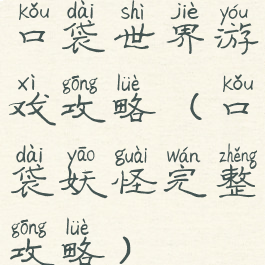 kǒu dài shì jiè yóu
口袋世界游
xì gōng lüè kǒu
戏攻略（口
dài yāo guài wán zhěng
袋妖怪完整
gōng lüè
攻略）